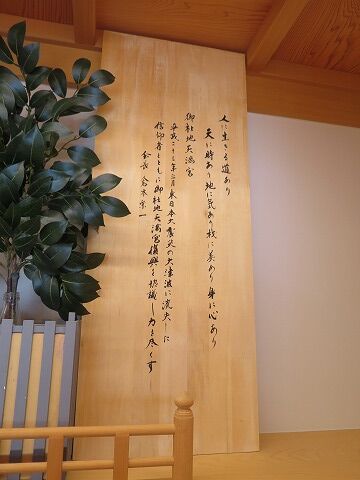 人に生きる道あり
天に時あり地に気あり技に美あり身に心あり
御社地天満宮
平成二十三年三月東日本大震災の大津波に流失した
信仰者とともに御社地天満宮復興を協議し力を尽くす
会長